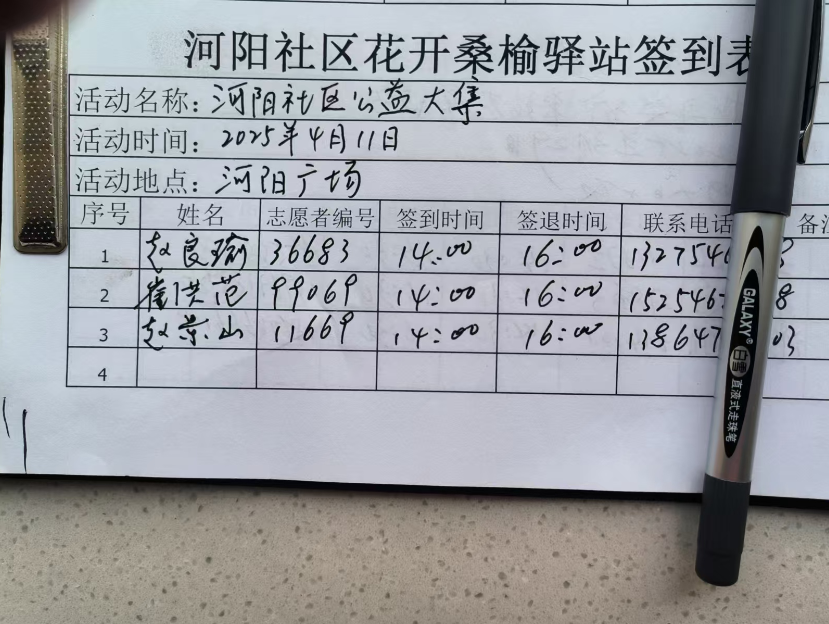 河阳社区花开桑榆驿站签到表
活动名称：河阳社区公益大集
活动时间：2025年4月11日
活动地点：河阳广场
序号 姓名 志愿者编号 签到时间 签退时间 联系电话 备注
1 赵良瑜 36683 14:00 16:00 1327546 3
2 崔洪范 99069 14:00 16:00 152546 8
3 赵景山 11669 14:00 16:00 138647 03
4
GALAXY®
白雪
直液式走珠笔